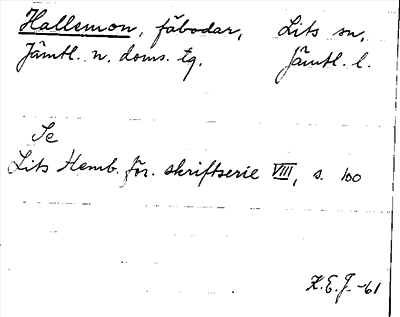 Hallsmon, fäbodar, Lits sn,
Jämtl. n. doms. tg. Jämtl. l.
Se
Lits Hemb. för. skriftserie VIII, s. 100
K.E.J. -61